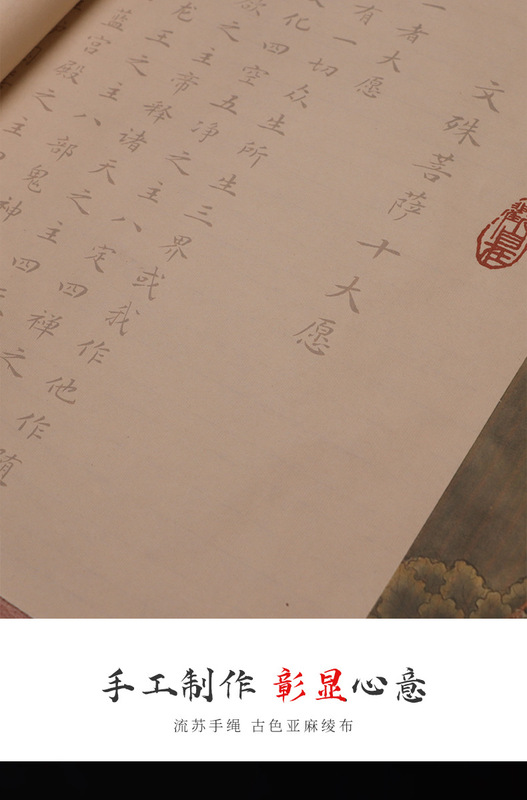 文殊菩萨十大愿
一者大愿
有一切众生所生三界或我作他作随
化四空五净之主八定四禅之
欲之主帝释诸天之主四
龙王之主八部鬼神
蓝宫殿之主
手工制作 彰显心意
流苏手绳 古色亚麻绫布